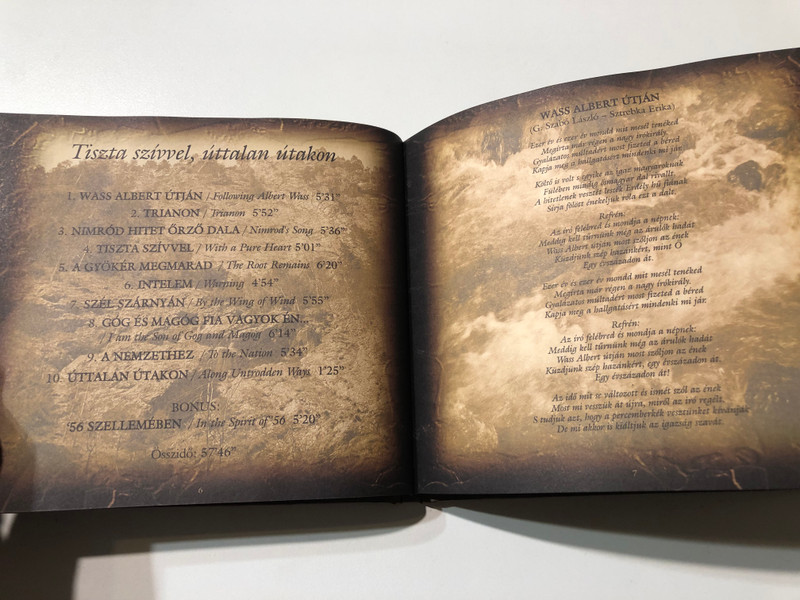 Tiszta szívvel, úttalan útakon
1. WASS ALBERT ÚTJÁN / Following Albert Wass 5'31"
2. TRIANON / Trianon 5'52"
3. NIMRÓD HITET ŐRZŐ DALA / Nimrod's Song 5'36"
4. TISZTA SZÍVVEL / With a Pure Heart 5'01"
5. A GYÖKÉR MEGMARAD / The Root Remains 6'20"
6. INTELEM / Warning 4'54"
7. SZÉL SZÁRNYÁN / By the Wing of Wind 5'55"
8. GÓG ÉS MAGÓG FIA VAGYOK ÉN...
/ I am the Son of Gog and Magog 6'14"
9. A NEMZETHEZ / To the Nation 5'34"
10. ÚTTALAN ÚTAKON / Along Untrodden Ways 1'25"
BONUS:
'56 SZELLEMÉBEN / In the Spirit of '56 5'20"
Összidő: 57'46"
6
WASS ALBERT ÚTJÁN
(G. Szabó László – Sztrebka Erika)
Ezer év és ezer év mondd mit mesél tenéked
Megírta már régen a nagy írókirály.
Gyalázatos múltadért most fizeted a béred
Kapja meg a hallgatásért mindenki mi jár.
Költő is volt végzike az igaz magyaroknak
Fülében mindig ómagyar dal rivallt.
A hitetlenek vesztét hozta Erdély hű fiának
Sírja fölött énekeljük róla ezt a dalt.
Refrén:
Az író felébred és mondja a népnek:
Meddig kell tűrnünk még az árulók hadát
Wass Albert útján most szóljon az ének
Küzdjünk szép hazánkért, mint Ő
Egy évszázadon át.
Ezer év és ezer év mondd mit mesél tenéked
Megírta már régen a nagy írókirály.
Gyalázatos múltadért most fizeted a béred
Kapja meg a hallgatásért mindenki mi jár.
Refrén:
Az író felébred és mondja a népnek:
Meddig kell tűrnünk még az árulók hadát
Wass Albert útján most szóljon az ének
Küzdjünk szép hazánkért, egy évszázadon át.
Egy évszázadon át!
Az idő mit se változott és ismét szól az ének
Most mi vesszük át újra, miről az író regélt.
S tudjuk azt, hogy a percemberkék vesztünket kívánják
De mi akkor is kiáltjuk az igazság szavát.
7